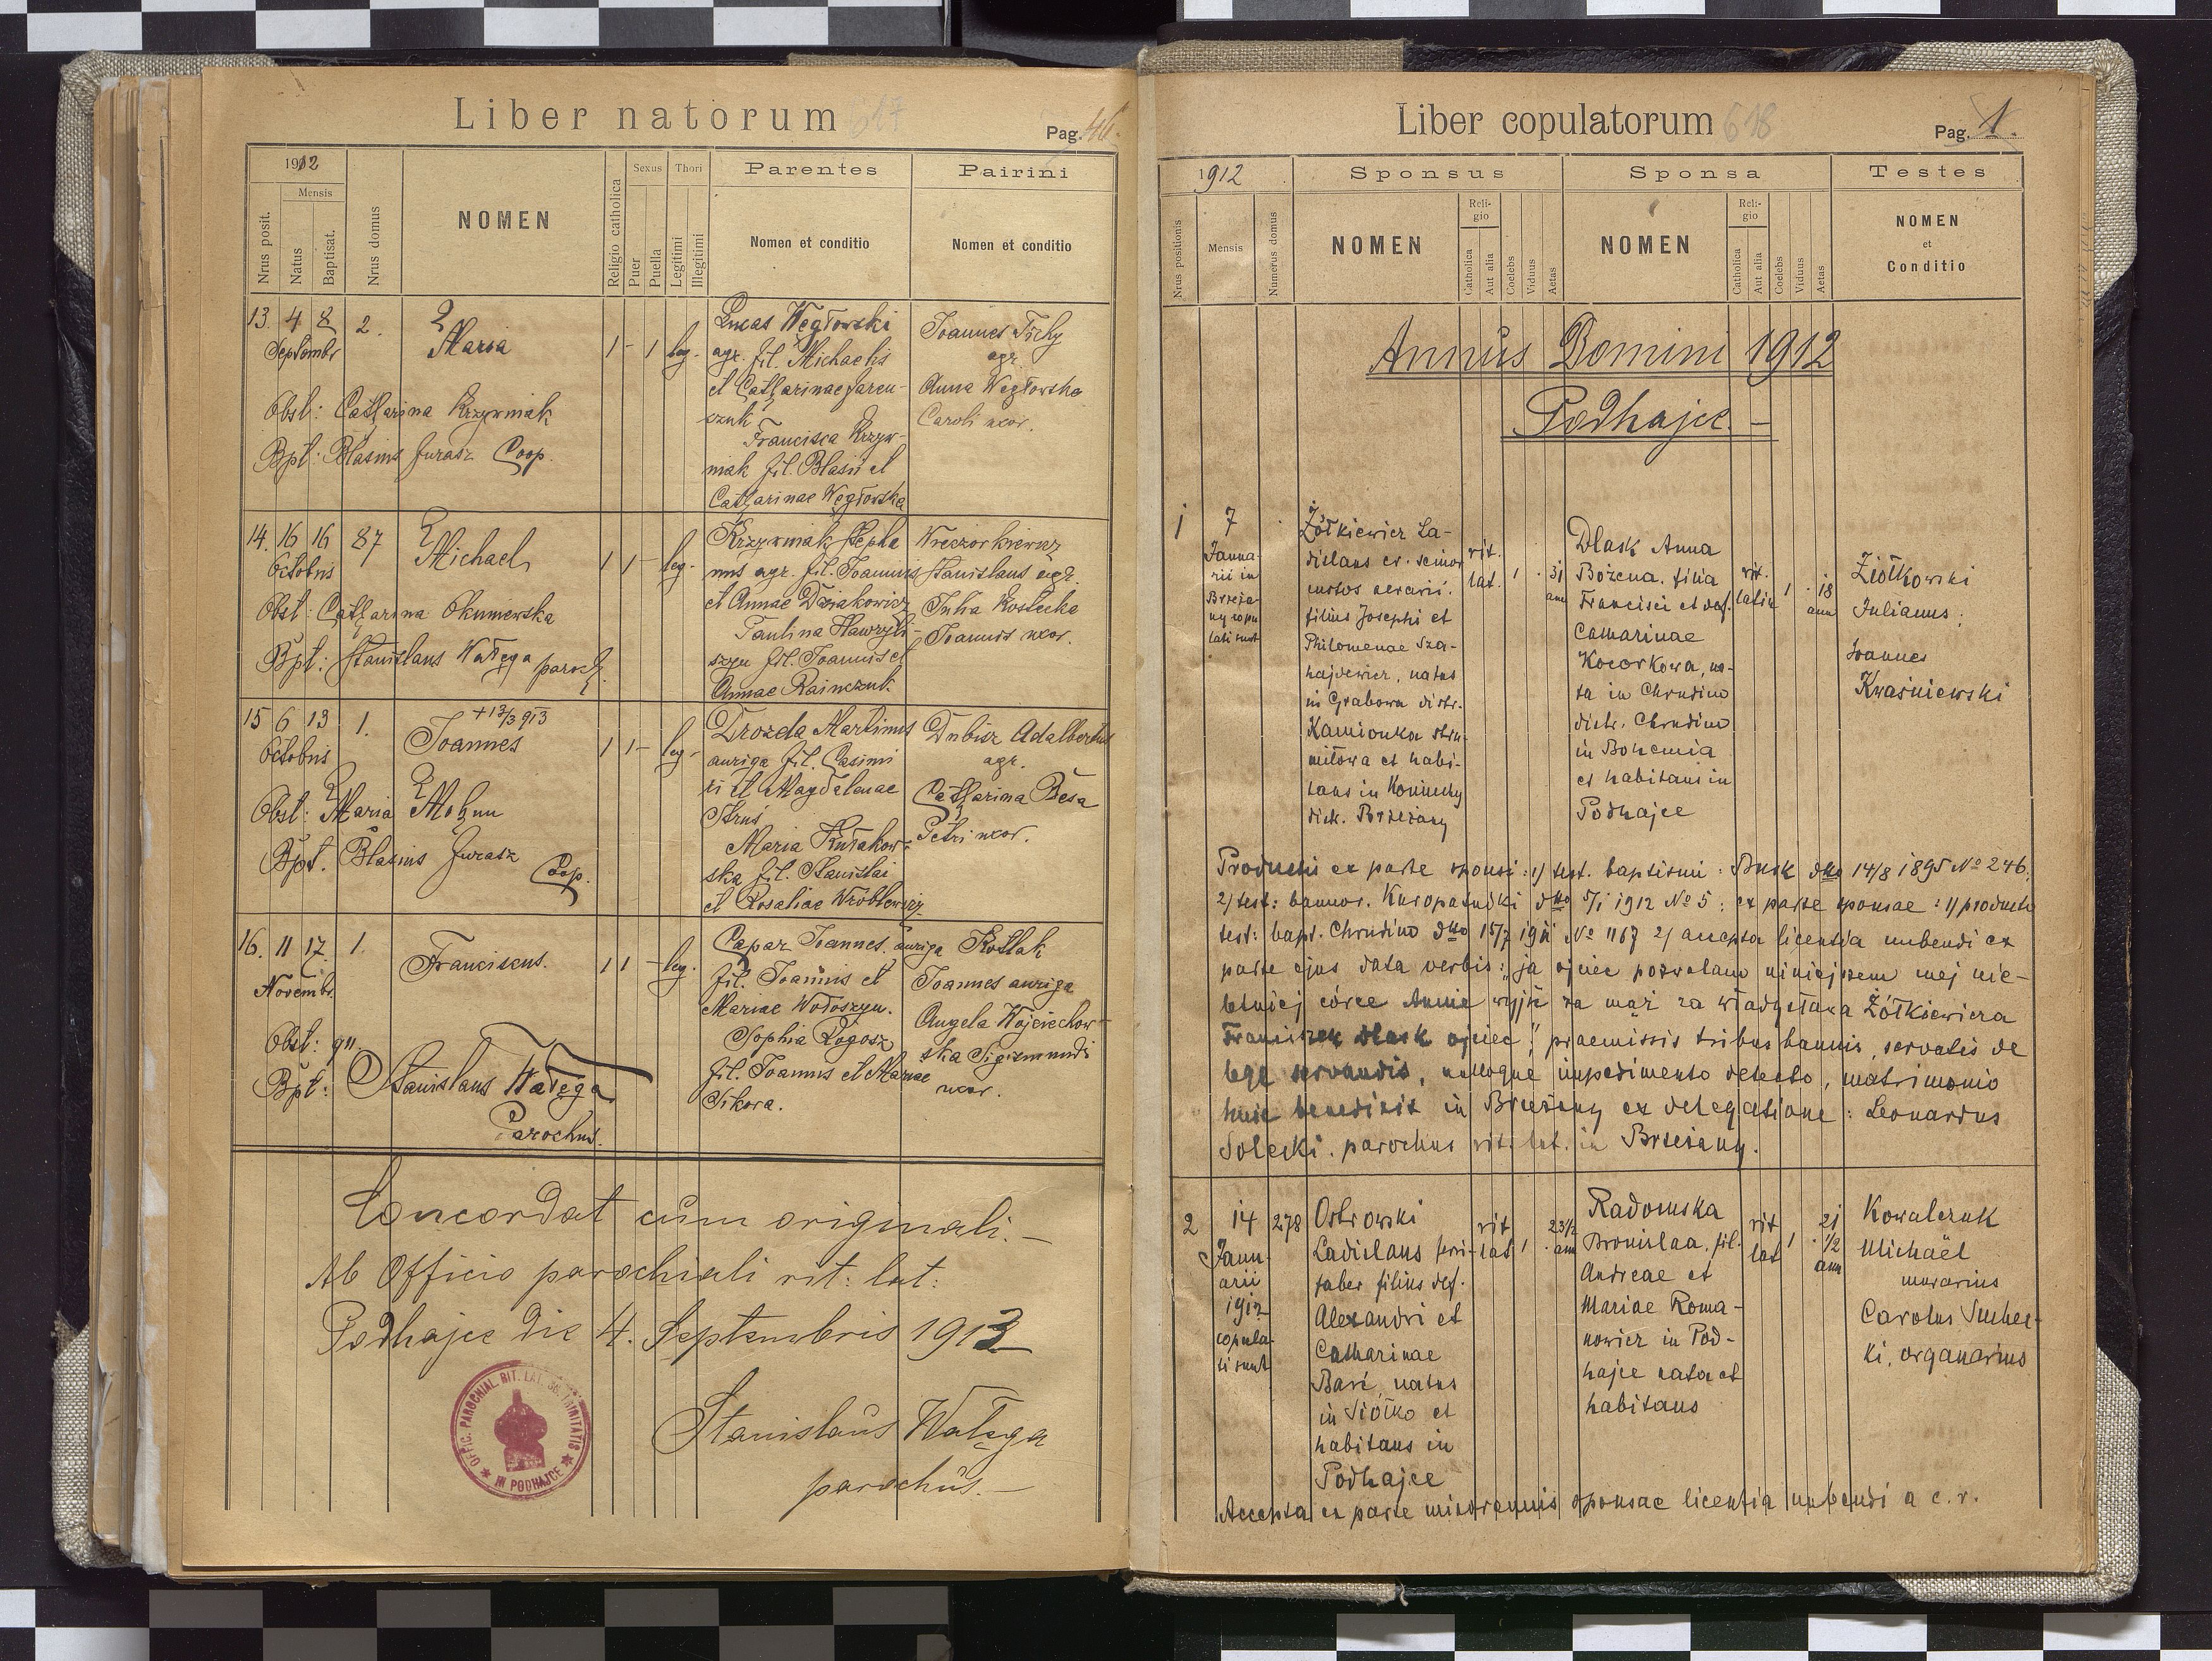 Liber natorum 617
Pag. 46.
1912
Mensis
Nrus posit.
Natus
Baptisat.
Nrus domus
NOMEN
Religio catholica
Sexus
Puer
Puella
Thori
Legitimi
Illegitimi
Parentes
Nomen et conditio
Pairini
Nomen et conditio
13. 4 8 2.
Septembr
Maria
1 - 1 leg.
Obst: Catharina Krzywniak
Bpt: Blasius Jurasz Coop.
Lucas Węgłowski
agr. fil. Michaelis
et Catharinae Jareu-
szuk
Francisca Krzyw-
niak fil. Blasii et
Catharinae Węgłowska
Joannes Tichy
agr.
Anna Węgłowska
Caroli uxor.
14. 16 16 87
Octobris
Michael
1 1 - leg.
Obst: Catharina Okuniewska
Bpt: Stanislaus Wałęga paroch.
Krzywniak Stepha
nus agr. fil. Joannis
et Annae Dziakowicz
Paulina Hawryli-
szyn fil. Joannis et
Annae Rainczuk.
Wieczorkiewicz
Stanislaus agr.
Julia Kostecka
Joannis uxor.
15 6 13 1.
Octobris
+ 13/3 913
Joannes
1 1 - leg.
Obst: Maria Mohyn
Bpt. Blasius Jurasz
Coop.
Drozda Martinus
auriga fil. Casimi
ri et Magdalenae
Struś
Maria Kułakow-
ska fil. Stanislai
et Rosaliae Wróblewicz
Dubisz Adalbertus
agr.
Catharina Besa
Petri uxor.
16. 11 17. 1.
Novembr.
Franciscus.
1 1 - leg.
Obst:
Bpt: Stanislaus Wałęga
Parochus.
Capar Joannes auriga
fil. Joannis et
Mariae Wołoszyn.
Sophia Rogosz
fil. Joannis et Mariae
Sikora.
Kotlak
Joannes auriga
Angela Wojciechow-
ska Sigismundi
uxor.
Concordat cum originali. -
Ab Officio parochiali rit: lat:
Podhajce die 4. Septembris 1913
OFFIC. PAROCHIAL. RIT. LAT. SS. TRINITATIS
IN PODHAJCE
Stanislaus Wałęga
parochus. -
Liber copulatorum 618
Pag. 1.
1912
Nrus positionis
Mensis
Numerus domus
Sponsus
NOMEN
Reli-
gio
Catholica
Aut alia
Coelebs
Viduus
Aetas
Sponsa
NOMEN
Reli-
gio
Catholica
Aut alia
Coelebs
Viduus
Aetas
Testes
NOMEN
et
Conditio
Annus Domini 1912
Podhajce. -
1 7
Janua-
rii in
Brzeża-
ny copu
lati sunt
Żółkiewicz La-
dislaus cr. senior
custos aerarii.
filius Josephi et
Philomenae Sza-
hajdewicz, natus
in Grabowa distr.
Kamionka stru-
miłowa et habi-
tans in Koniuchy
distr. Brzeżany
rit.
lat. 1 31
ann
Dlask Anna
Bożena. filia
Francisci et def.
Catharinae
Kocorkowa, na-
ta in Chrudim
distr. Chrudim
in Bohemia
et habitans in
Podhajce
rit.
latin 1 18
ann
Ziółkowski
Julianus;
Joannes
Kwaśniewski
Productis ex parte sponsi: 1) test. baptismi: Busk dto 14/8 1895 No 246.
2) test: bannor. Kuropatniki dto 5/1 1912 No 5; ex parte sponsae: 1) producto
test: bapt. Chrudim dto 15/7 1911 No 1167 2) accepta licentia nubendi ex
parte ejus data verbis: "ja ojciec pozwalam niniejszem mej nie-
letniej córce Annie wyjść za mąż za Władysława Żółkiewicza
Franciszek Dlask ojciec", praemissis tribus bannis, servatis de
lege servandis, nulloque impedimento detecto, matrimonio
huic benedixit in Brzeżany ex delegatione: Leonardus
Solecki. parochus rit. lat. in Brzeżany.
2 14 278
Janu-
arii
1912
copula-
ti sunt
Ostrowski
Ladislaus ferri-
faber filius def.
Alexandri et
Catharinae
Baś, natus
in Siółko et
habitans in
Podhajce
rit
lat 1 23 1/2
ann
Radomska
Bronislaa. fil.
Andreae et
Mariae Roma-
nowicz in Pod-
hajce nata et
habitans
rit
lat 1 21
1/2
ann
Kowalczuk
Michaël
murarius
Carolus Suchec-
ki, organarius
Accepta ex parte minorennis sponsae licentia nubendi a c. r.